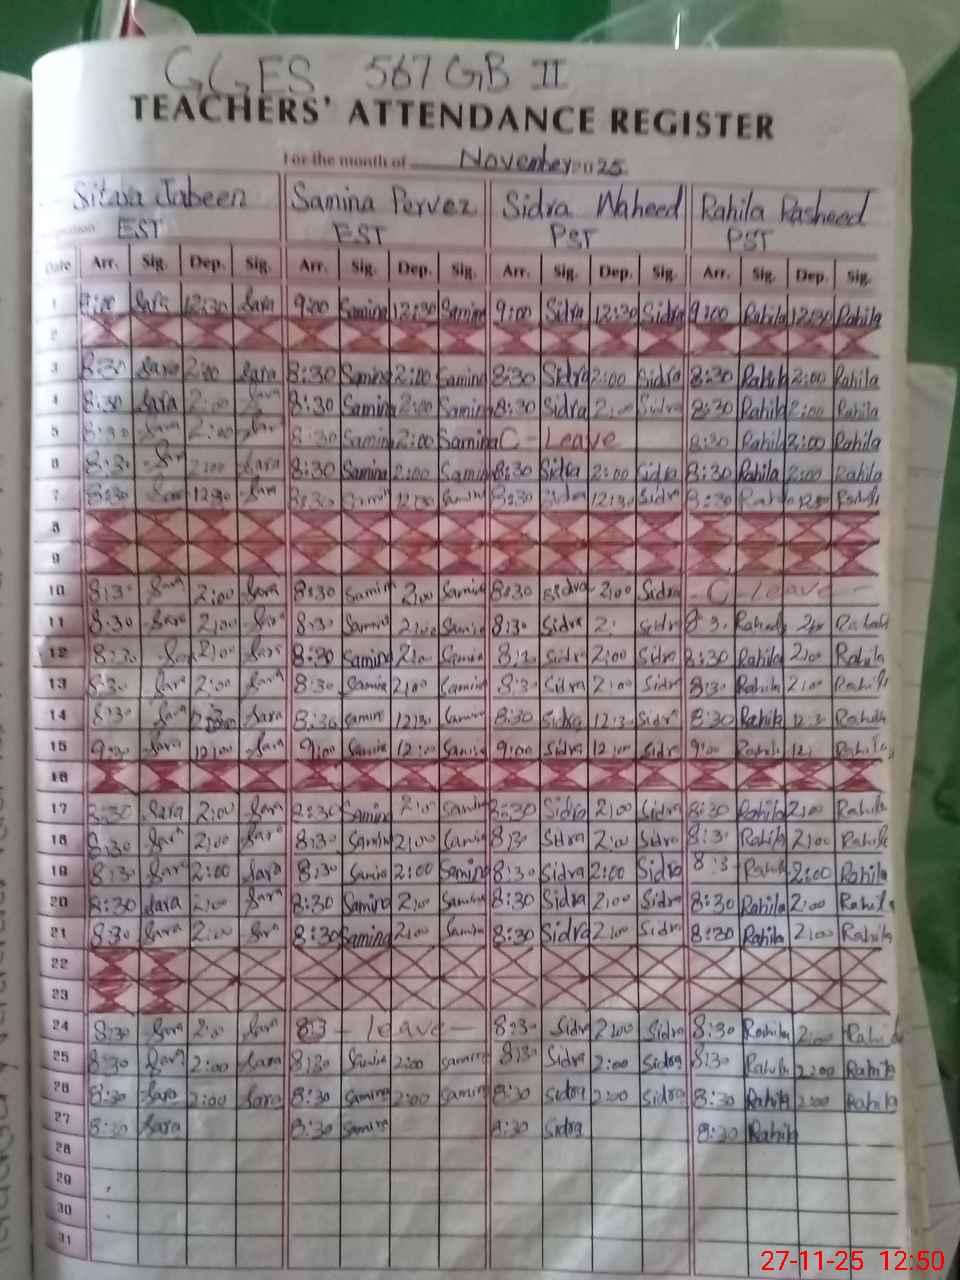 GGES 567 GB II
TEACHERS' ATTENDANCE REGISTER
For the month of November 2025
Jabeen Samina Pervez Sidra Waheed Rahila Rasheed
EST EST PST PST
Date Arr. Sig. Dep. Sig. Arr. Sig. Dep. Sig. Arr. Sig. Dep. Sig. Arr. Sig. Dep. Sig.
1 9:00 Sara 12:30 Sara 9:00 Samina 12:30 Samina 9:00 Sidra 12:30 Sidra 9:00 Rahila 12:30 Rahila
2
3 8:30 Sara 2:00 Sara 8:30 Samina 2:00 Samina 8:30 Sidra 2:00 Sidra 8:30 Rahila 2:00 Rahila
4 8:30 Sara 2:00 Sara 8:30 Samina 2:00 Samina 8:30 Sidra 2:00 Sidra 8:30 Rahila 2:00 Rahila
5 8:30 Sara 2:00 Sara 8:30 Samina 2:00 Samina C-Leave 8:30 Rahila 2:00 Rahila
6 8:30 2:00 Sara 8:30 Samina 2:00 Samina 8:30 Sidra 2:00 Sidra 8:30 Rahila 2:00 Rahila
7 8:30 Sara 12:30 Sara 8:30 Samina 12:30 Samina 8:30 Sidra 12:30 Sidra 8:30 Rahila 12:30 Rahila
8
9
10 8:30 Sara 2:00 Sara 8:30 Samina 2:00 Samina 8:30 Sidra 2:00 Sidra - C - Leave -
11 8:30 Sara 2:00 Sara 8:30 Samina 2:00 Samina 8:30 Sidra 2: Sidra 8:3 Rahila 2:00 Rahila
12 8:30 Sara 2:00 Sara 8:30 Samina 2:00 Samina 8:30 Sidra 2:00 Sidra 8:30 Rahila 2:00 Rahila
13 8:30 Sara 2:00 Sara 8:30 Samina 2:00 Samina 8:30 Sidra 2:00 Sidra 8:30 Rahila 2:00 Rahila
14 8:30 Sara Sara 8:30 Samina 12:30 Samina 8:30 Sidra 12:30 Sidra 8:30 Rahila 12:3 Rahila
15 9:30 Sara 12:00 Sara 9:00 Samina 12:00 Samina 9:00 Sidra 12:00 Sidra 9:00 Rahila 12 Rahila
16
17 8:30 Sara 2:00 Sara 8:30 Samina 2:00 Samina 8:30 Sidra 2:00 Sidra 8:30 Rahila 2:00 Rahila
18 8:30 Sara 2:00 Sara 8:30 Samina 2:00 Samina 8:30 Sidra 2:00 Sidra 8:30 Rahila 2:00 Rahila
19 8:30 Sara 2:00 Sara 8:30 Samina 2:00 Samina 8:30 Sidra 2:00 Sidra 8:3 Rahila 2:00 Rahila
20 8:30 Sara 2:00 Sara 8:30 Samina 2:00 Samina 8:30 Sidra 2:00 Sidra 8:30 Rahila 2:00 Rahila
21 8:30 Sara 2:00 Sara 8:30 Samina 2:00 Samina 8:30 Sidra 2:00 Sidra 8:30 Rahila 2:00 Rahila
22
23
24 8:30 Sara 2:00 Sara 83 - leave - 8:30 Sidra 2:00 Sidra 8:30 Rahila 2:00 Rahila
25 8:30 Sara 2:00 Sara 8:30 Samina 2:00 Samina 8:30 Sidra 2:00 Sidra 8:30 Rahila 2:00 Rahila
26 8:30 Sara 2:00 Sara 8:30 Samina 2:00 Samina 8:30 Sidra 2:00 Sidra 8:30 Rahila 2:00 Rahila
27 8:30 Sara 8:30 Samina 8:30 Sidra 8:30 Rahila
28
29
30
31
27-11-25 12:50